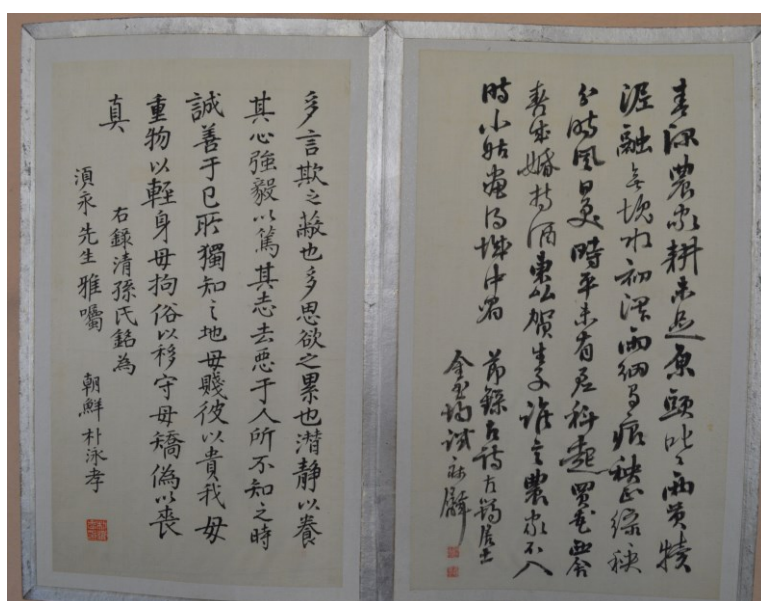 春深農家耕未足原頭叱々兩黃犢
泥融無塊水初渾雨細有痕秧正綠秧
分時風日美時平未有差科起買花西舍
喜成婚持酒東鄰賀生子誰言農家不入
時小姑畫得城中眉
節錄古詩
金玉均
多言欺之蔽也多思欲之累也潛靜以養
其心強毅以篤其志去惡于人所不知之時
誠善于已所獨知之地毋賤彼以貴我毋
重物以輕身毋拘俗以移守毋矯偽以喪
真
右錄清孫氏銘為
須永先生雅囑
朝鮮 朴泳孝